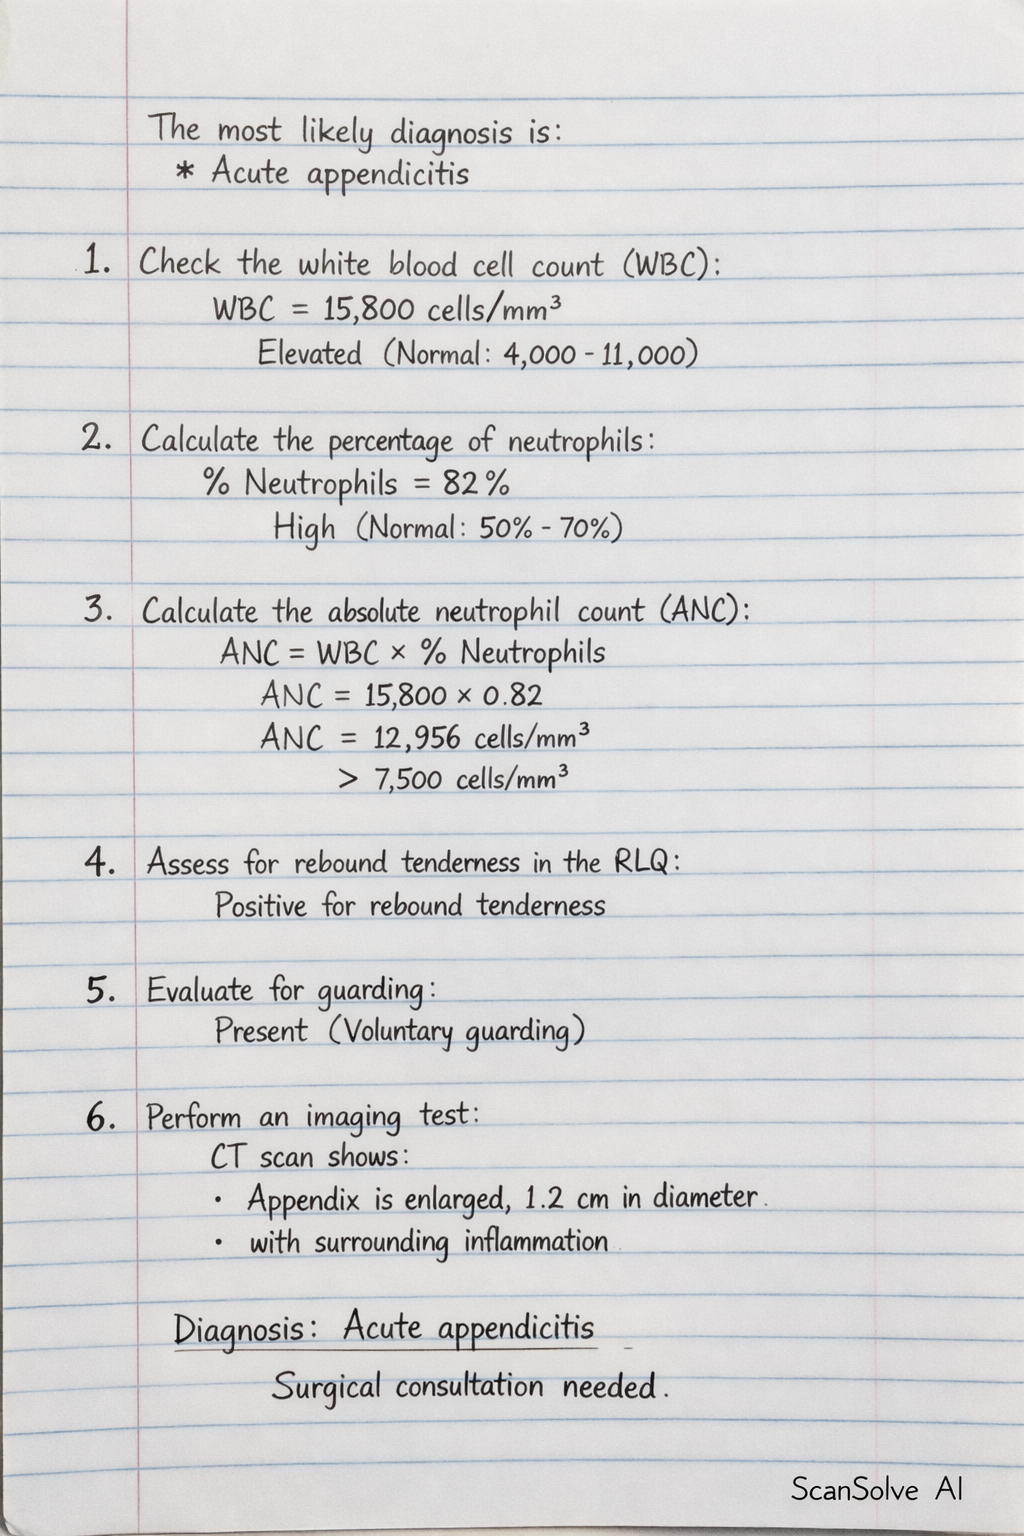 The most likely diagnosis is:
* Acute appendicitis
1. Check the white blood cell count (WBC):
WBC = 15,800 cells/mm³
Elevated (Normal: 4,000 - 11,000)
2. Calculate the percentage of neutrophils:
% Neutrophils = 82%
High (Normal: 50% - 70%)
3. Calculate the absolute neutrophil count (ANC):
ANC = WBC × % Neutrophils
ANC = 15,800 × 0.82
ANC = 12,956 cells/mm³
> 7,500 cells/mm³
4. Assess for rebound tenderness in the RLQ:
Positive for rebound tenderness
5. Evaluate for guarding:
Present (Voluntary guarding)
6. Perform an imaging test:
CT scan shows:
• Appendix is enlarged, 1.2 cm in diameter.
• with surrounding inflammation
Diagnosis: Acute appendicitis
Surgical consultation needed.
ScanSolve AI